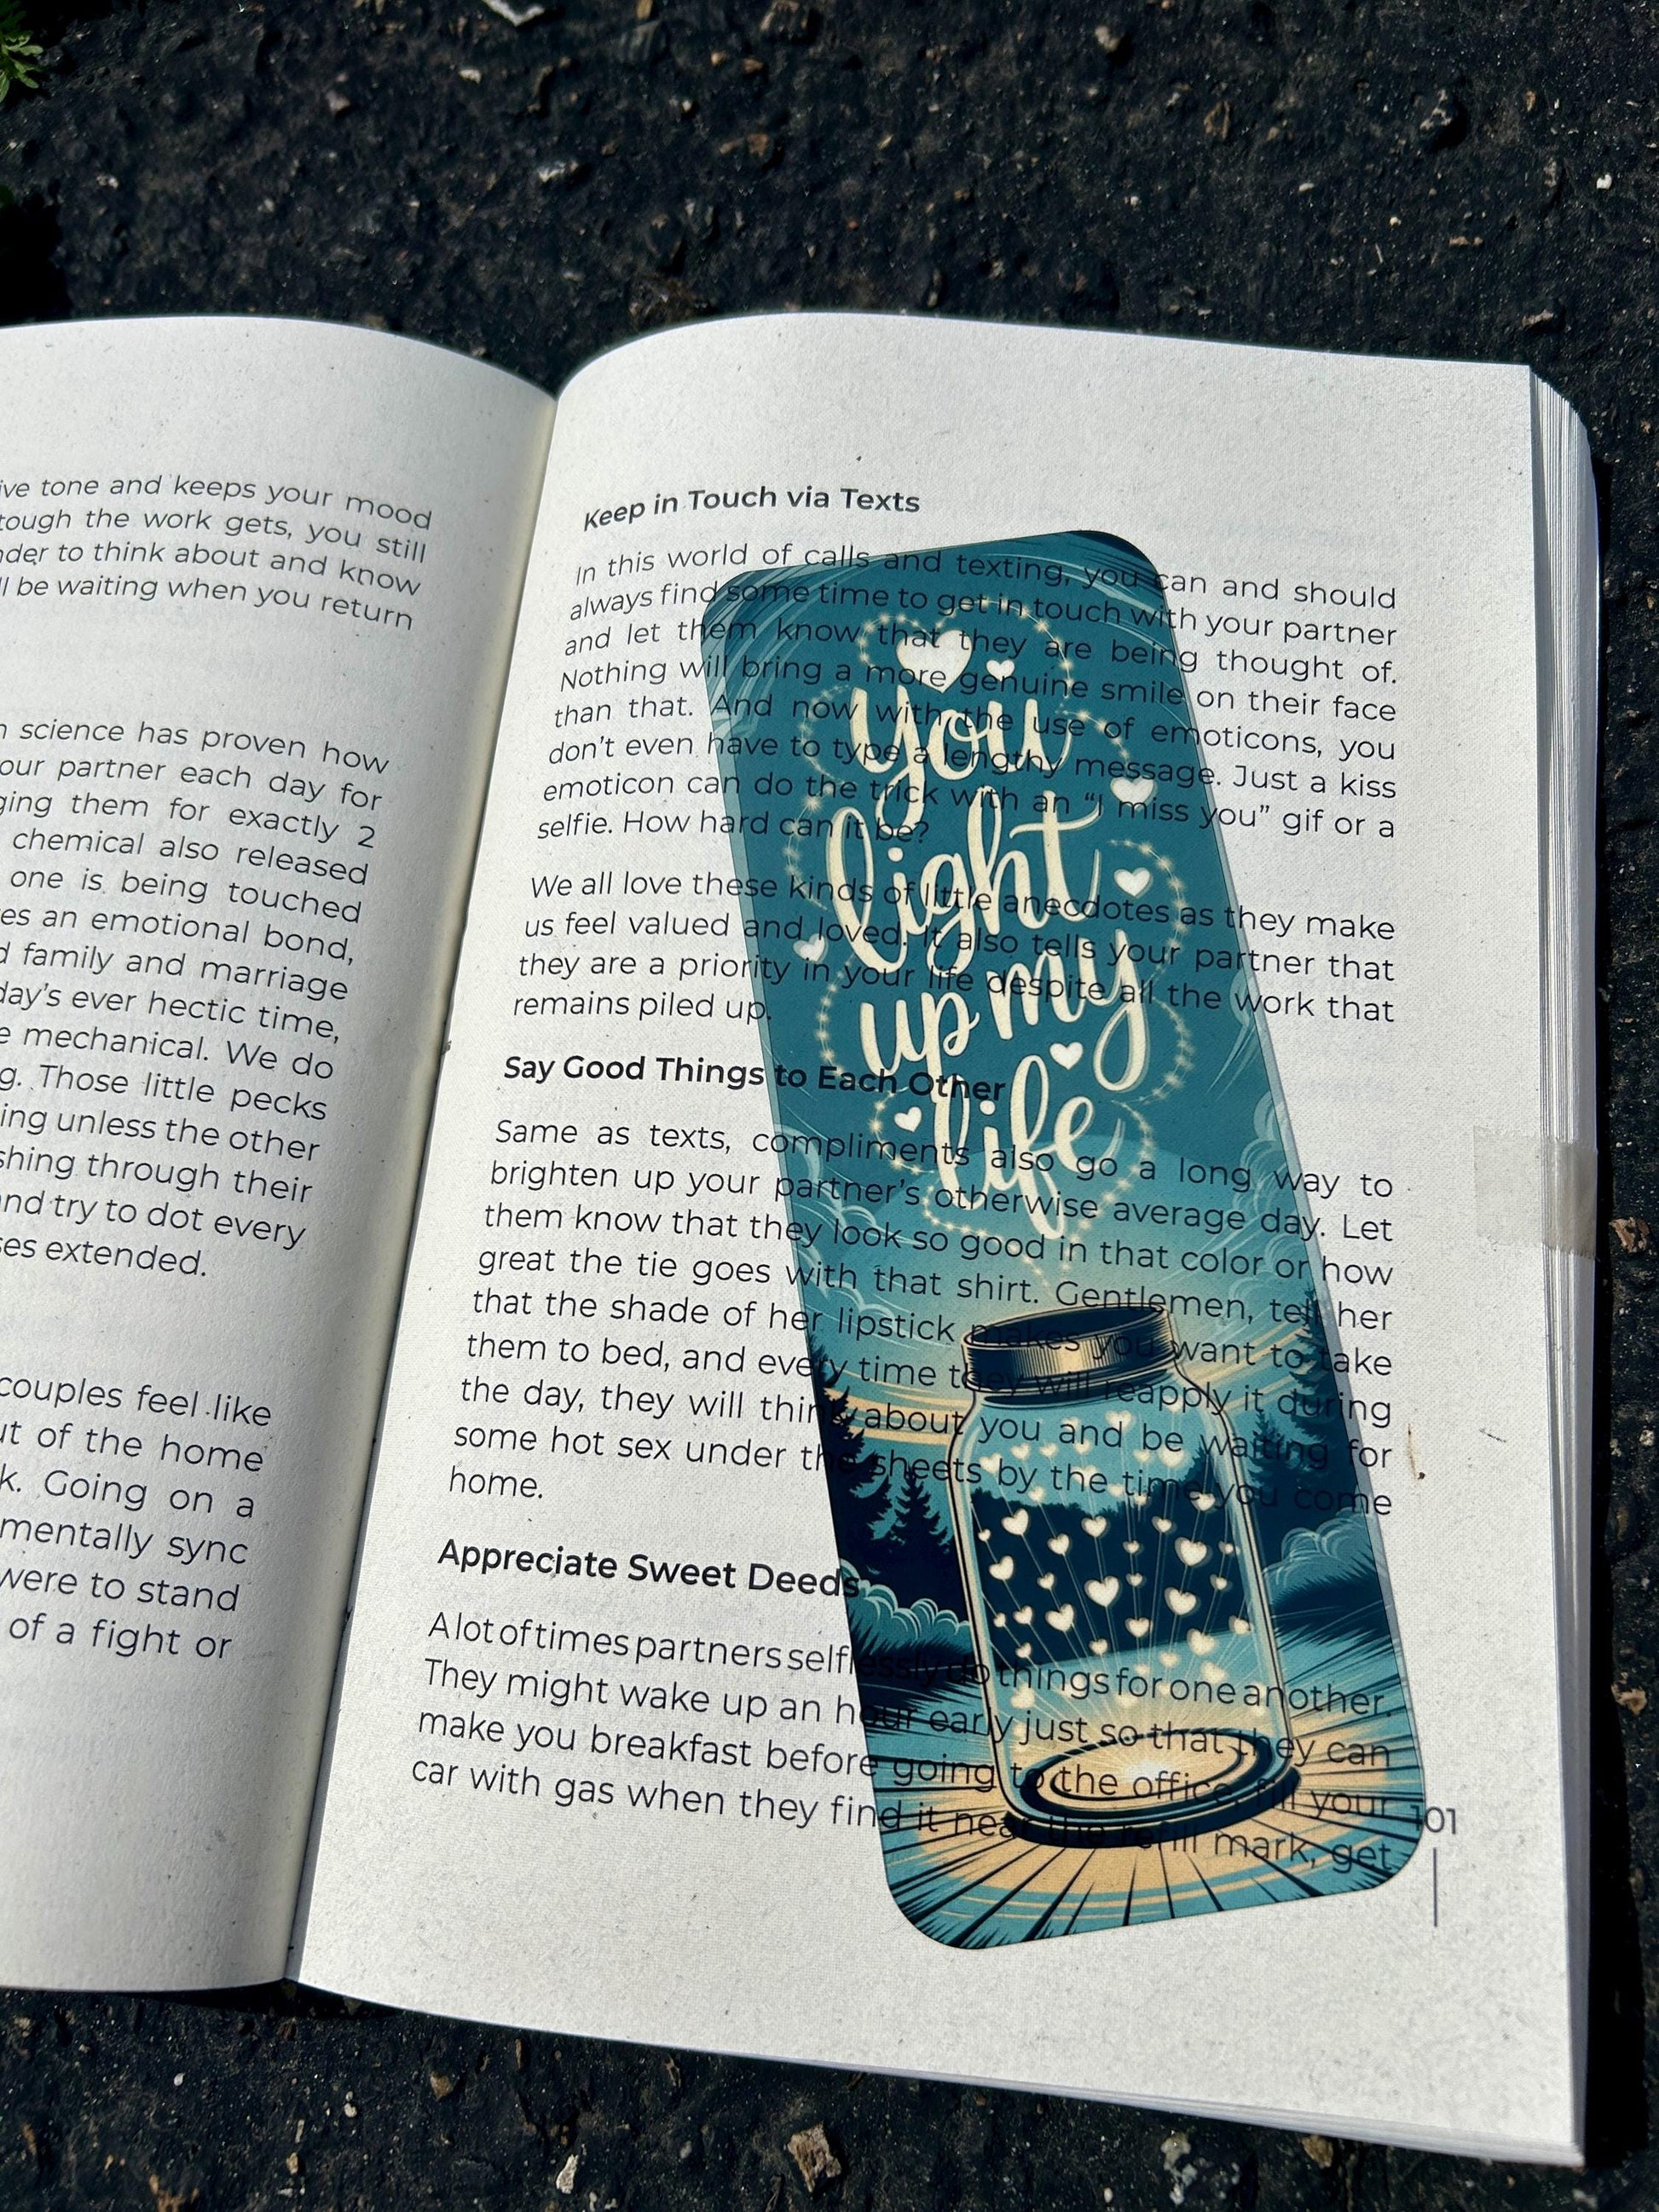 ive tone and keeps your mood
tough the work gets, you still
nder to think about and know
ll be waiting when you return
n science has proven how
our partner each day for
ging them for exactly 2
chemical also released
one is being touched
es an emotional bond,
d family and marriage
day's ever hectic time,
e mechanical. We do
g. Those little pecks
ing unless the other
shing through their
and try to dot every
ses extended.
couples feel like
ut of the home
k. Going on a
mentally sync
were to stand
of a fight or
Keep in Touch via Texts
In this world of calls and texting, you can and should
always find some time to get in touch with your partner
and let them know that they are being thought of.
Nothing will bring a more genuine smile on their face
than that. And now with the use of emoticons, you
don't even have to type a lengthy message. Just a kiss
emoticon can do the trick with an "I miss you" gif or a
selfie. How hard can it be?
We all love these kinds of little anecdotes as they make
us feel valued and loved. It also tells your partner that
they are a priority in your life despite all the work that
remains piled up.
Say Good Things to Each Other
Same as texts, compliments also go a long way to
brighten up your partner's otherwise average day. Let
them know that they look so good in that color or how
great the tie goes with that shirt. Gentlemen, tell her
that the shade of her lipstick makes you want to take
them to bed, and every time they will reapply it during
the day, they will think about you and be waiting for
some hot sex under the sheets by the time you come
home.
Appreciate Sweet Deeds
A lot of times partners selflessly do things for one another.
They might wake up an hour early just so that they can
make you breakfast before going to the office, fill your
car with gas when they find it near the refill mark, get
101
you
light
up my
life